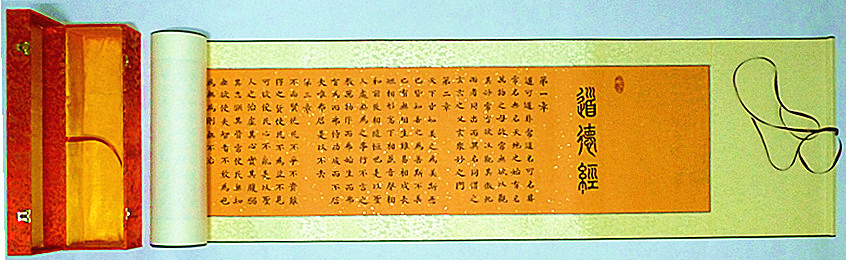 道德經
第一章
道可道非常道名可名非
常名無名天地之始有名
萬物之母故常無欲以觀
其妙常有欲以觀其徼此
兩者同出而異名同謂之
玄玄之又玄衆妙之門
第二章
天下皆知美之為美斯惡
已皆知善之為善斯不善
已有無相生難易相成長
短相形高下相傾音聲相
和前後相隨恒也是以聖
人處無為之事行不言之
教萬物作而弗始生而弗
有為而弗恃功成而不居
夫唯弗居是以不去
第三章
不尚賢使民不爭不貴難
得之貨使民不為盜不見
可欲使民心不亂是以聖
人之治虛其心實其腹弱
其志強其骨常使民無知
無欲使夫智者不敢為也
為無為則無不治